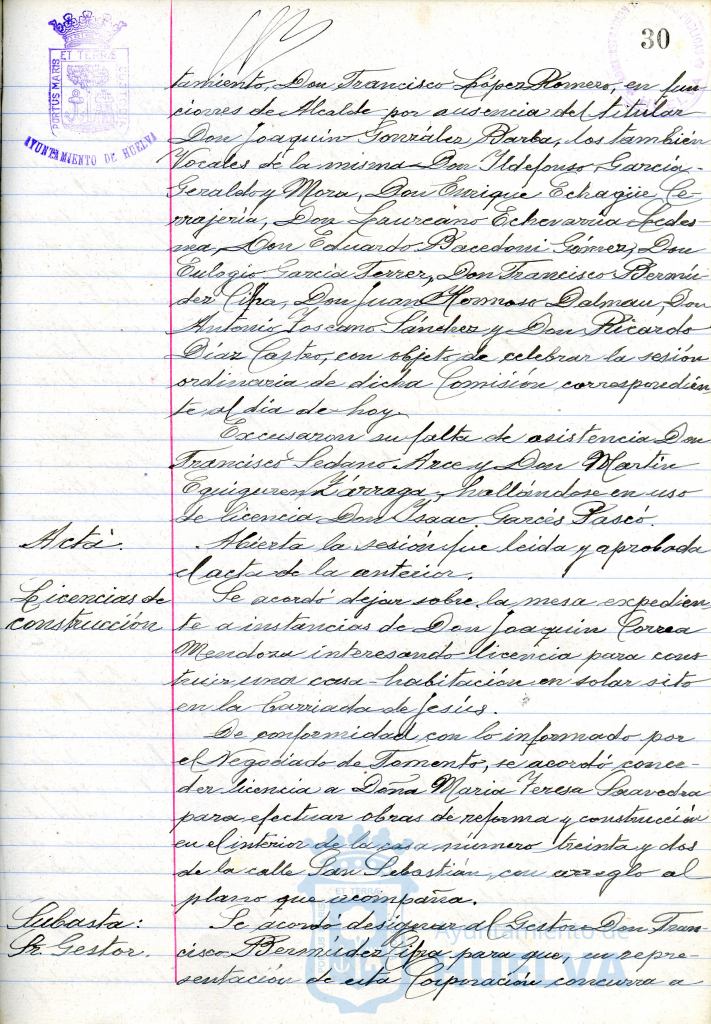 30
ET TERRÆ
PORTUS MARIS
CUSTODIA
AYUNTAMIENTO DE HUELVA
tamiento, Don Francisco López Romero, en fun-
ciones de Alcalde por ausencia del titular
Don Joaquín González Barba, los también
Vocales de la misma Don Ildefonso García-
Geraldo y Mora, Don Enrique Echagüe Ce-
rrajería, Don Laureano Echevarría Ledes-
ma, Don Eduardo Bacedoni Gómez, Don
Eulogio García Ferrer, Don Francisco Bermú-
dez Cifra, Don Juan Hermoso Dalmau, Don
Antonio Toscano Sánchez y Don Ricardo
Díaz Castro, con objeto de celebrar la sesión
ordinaria de dicha Comisión correspondien-
te al día de hoy.
Excusaron su falta de asistencia Don
Francisco Sedano Arce y Don Martín
Eguiguren Zárraga, hallándose en uso
de licencia Don Isaac Garcés Pascó.
Acta.
Abierta la sesión fue leida y aprobada
el acta de la anterior.
Licencias de
construcción
Se acordó dejar sobre la mesa expedien-
te a instancias de Don Joaquín Correa
Mendoza interesando licencia para cons-
truir una casa-habitación en solar sito
en la Barriada de Jesús.
De conformidad con lo informado por
el Negociado de Fomento, se acordó conce-
der licencia a Doña Maria Teresa Saavedra
para efectuar obras de reforma y construcción
en el interior de la casa número treinta y dos
de la calle San Sebastián, con arreglo al
plano que acompaña.
Subasta:
Sr. Gestor.
Se acordó designar al Gestor Don Fran-
cisco Bermúdez Cifra para que, en repre-
sentación de esta Corporación concurra a
ET TERRÆ
Ayuntamiento de
HUELVA